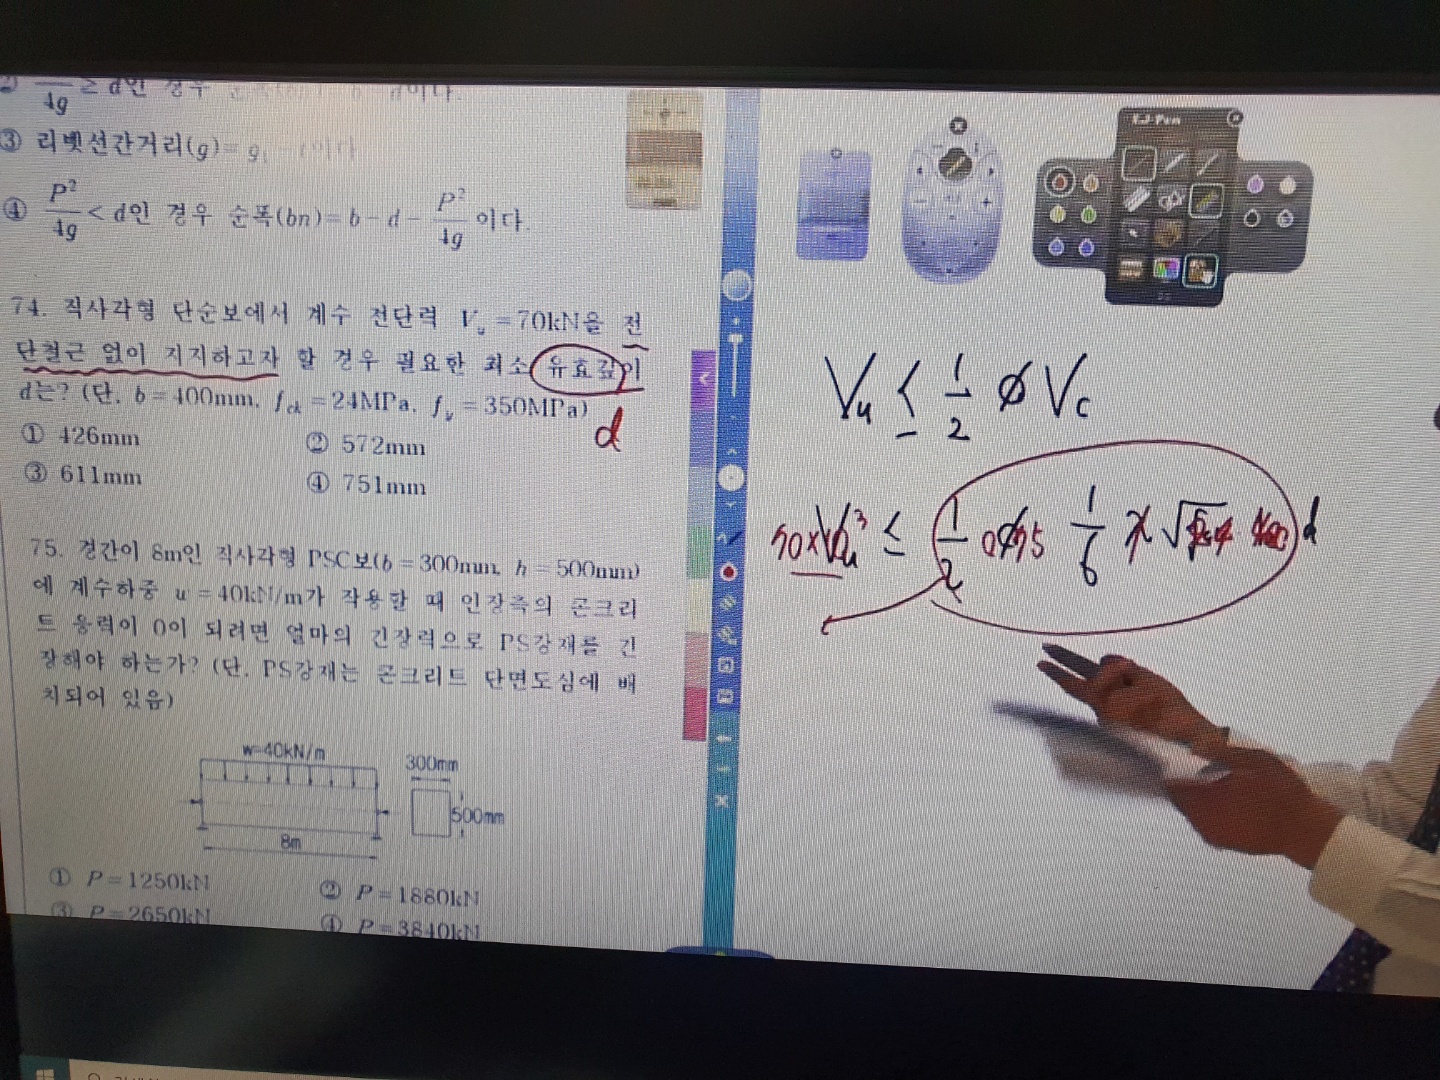 4g ≥ d인 경우
③ 리벳선간거리(g)= g₁ - t이다
④ P²/4g < d인 경우 순폭(bn)= b - d - P²/4g 이다.
74. 직사각형 단순보에서 계수 전단력 Vu =70kN을 전
단철근 없이 지지하고자 할 경우 필요한 최소 유효깊이
d는? (단, b = 400mm, fck =24MPa, fy =350MPa)
d
① 426mm ② 572mm
③ 611mm ④ 751mm
75. 경간이 8m인 직사각형 PSC보(b = 300mm, h = 500mm)
에 계수하중 u = 40kN/m가 작용할 때 인장측의 콘크리
트 응력이 0이 되려면 얼마의 긴장력으로 PS강재를 긴
장해야 하는가? (단, PS강재는 콘크리트 단면도심에 배
치되어 있음)
w=40kN/m
300mm
500mm
8m
① P = 1250kN ② P = 1880kN
③ P = 2650kN ④ P = 3840kN
Vu ≤ 1/2 ø Vc
≤ 1/2 1/6 √ d